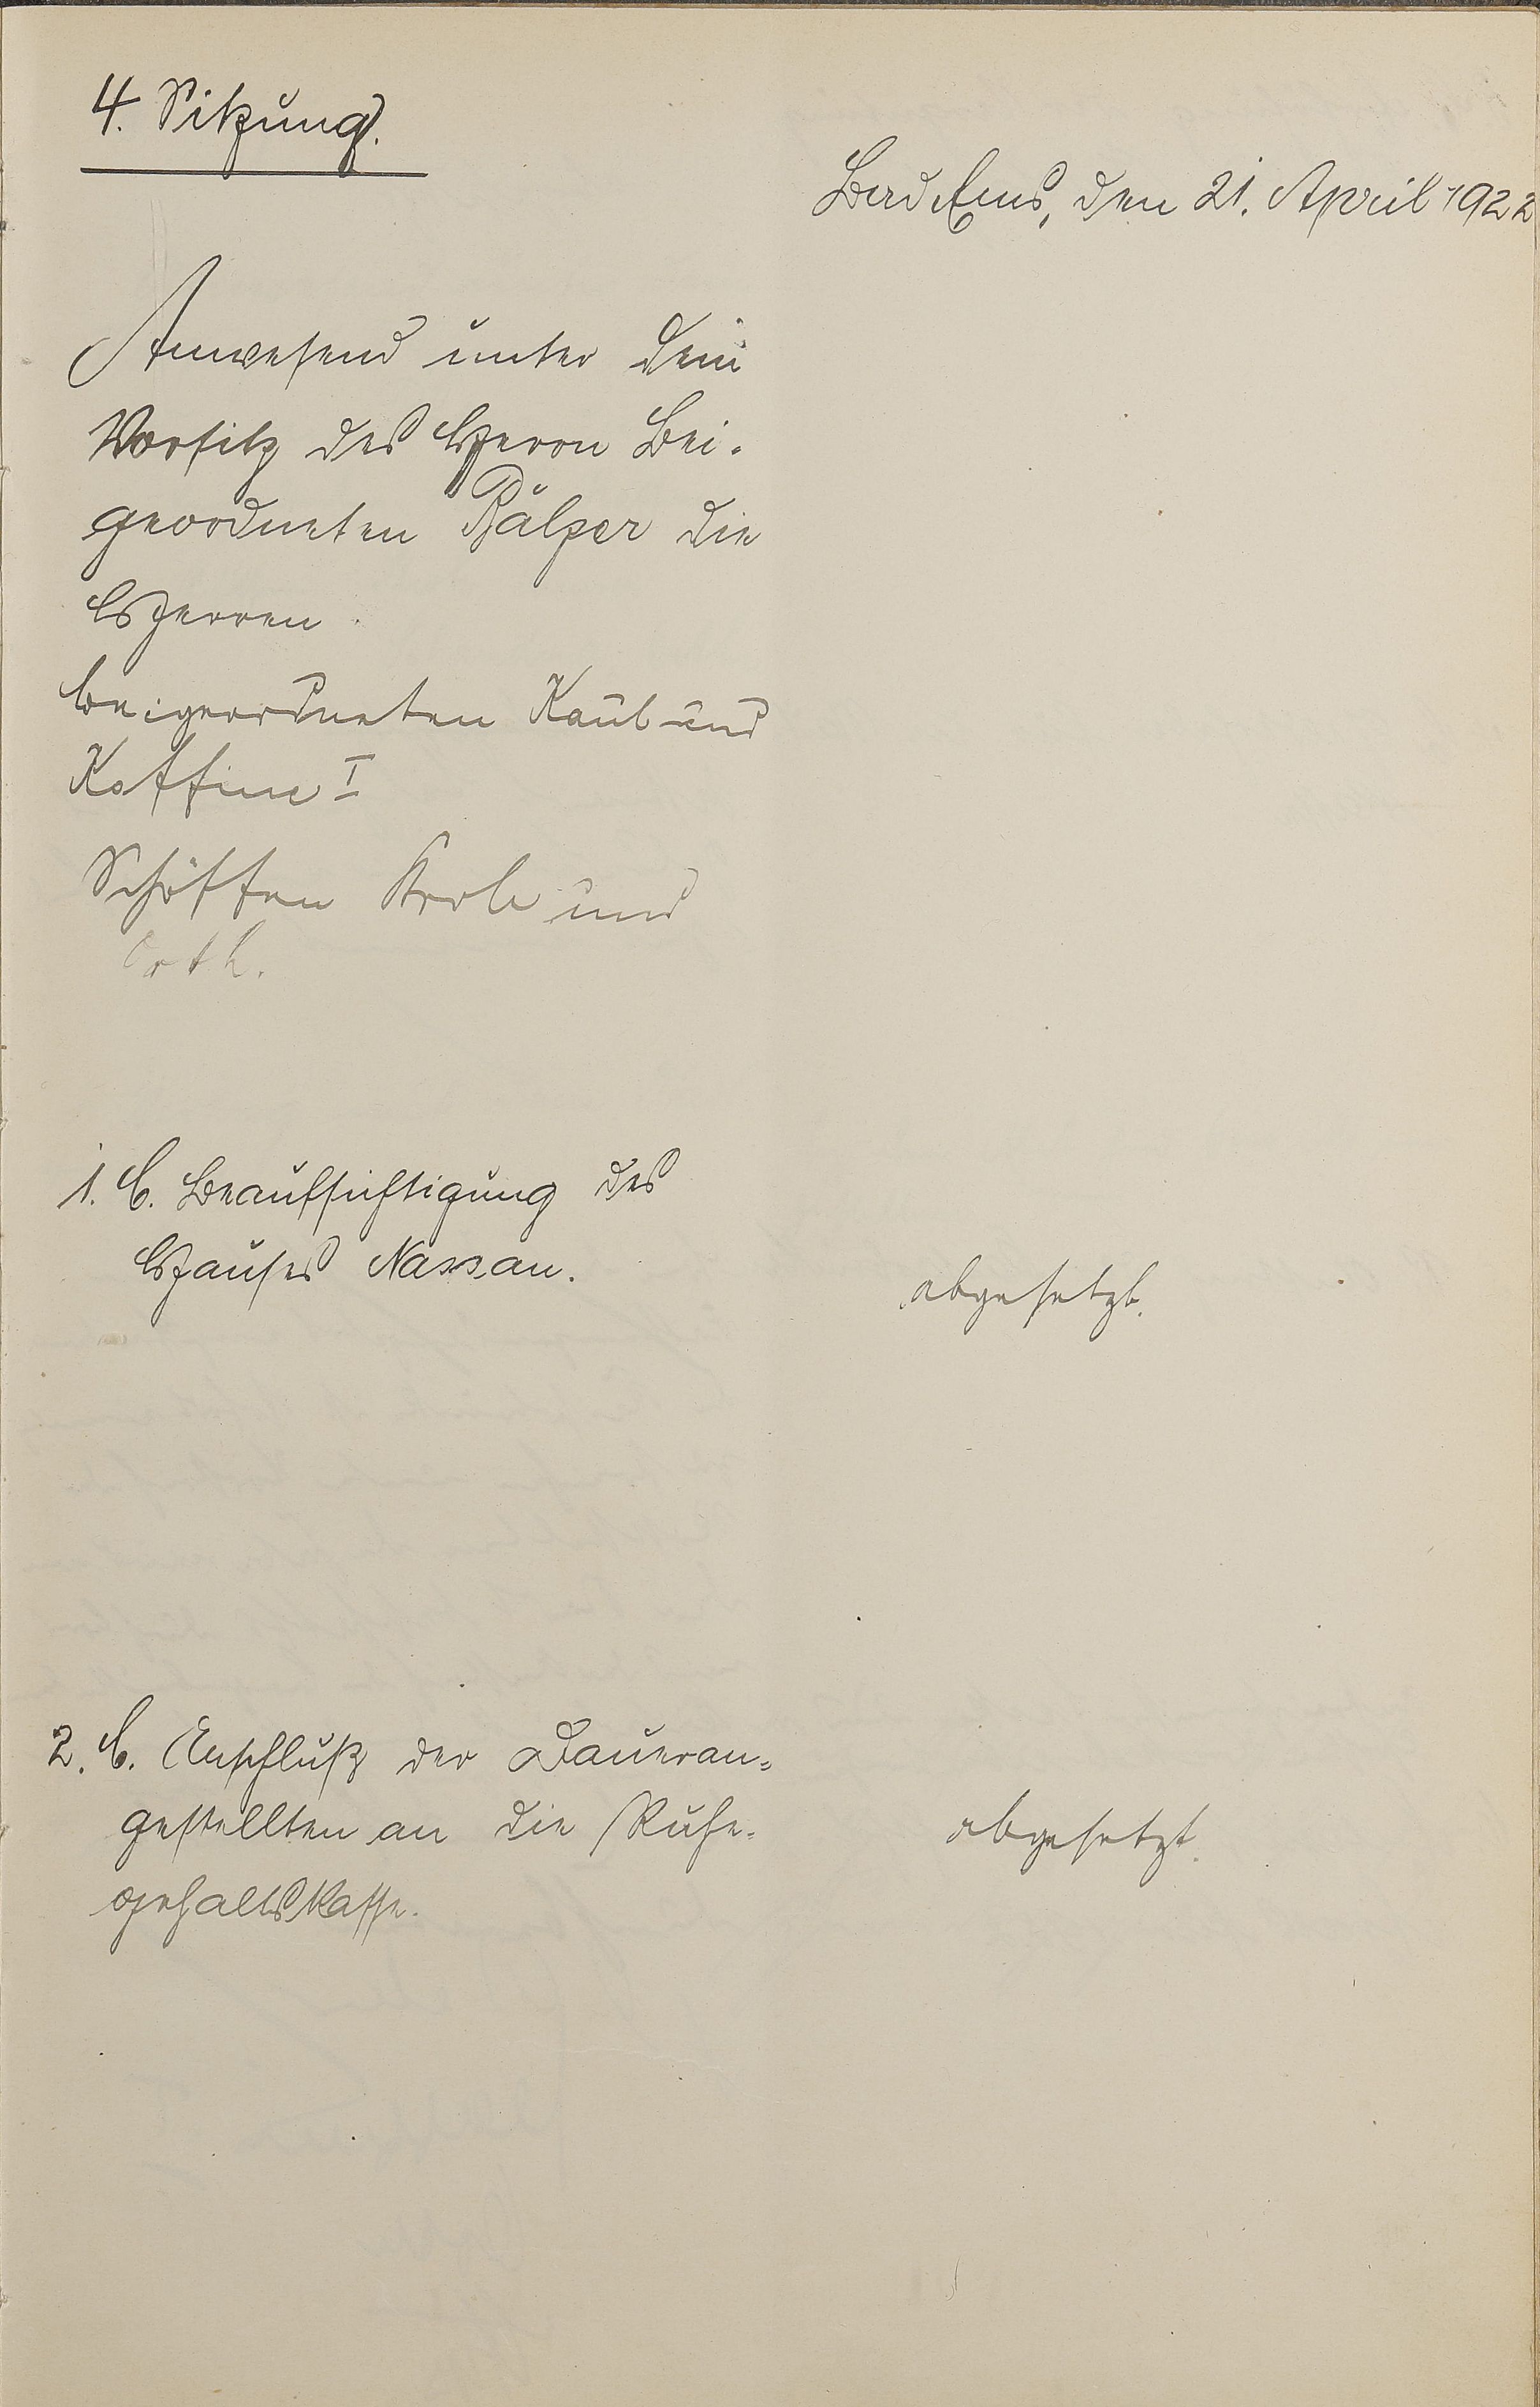 4. Sitzung.
Bad Ems, den 21. April 1922
Anwesend unter dem
Vorsitz des Herrn Bei-
geordneten Bälzer die
Herren
Beigeordneten Kaul und
Koffine I
Schöffen Krole und
Orth.
1. C. Beaufsichtigung des
Hauses Nassau.
abgesetzt.
2. C. Anschluß der Daueran-
gestellten an die Ruhe-
abgesetzt.
gehaltskasse.